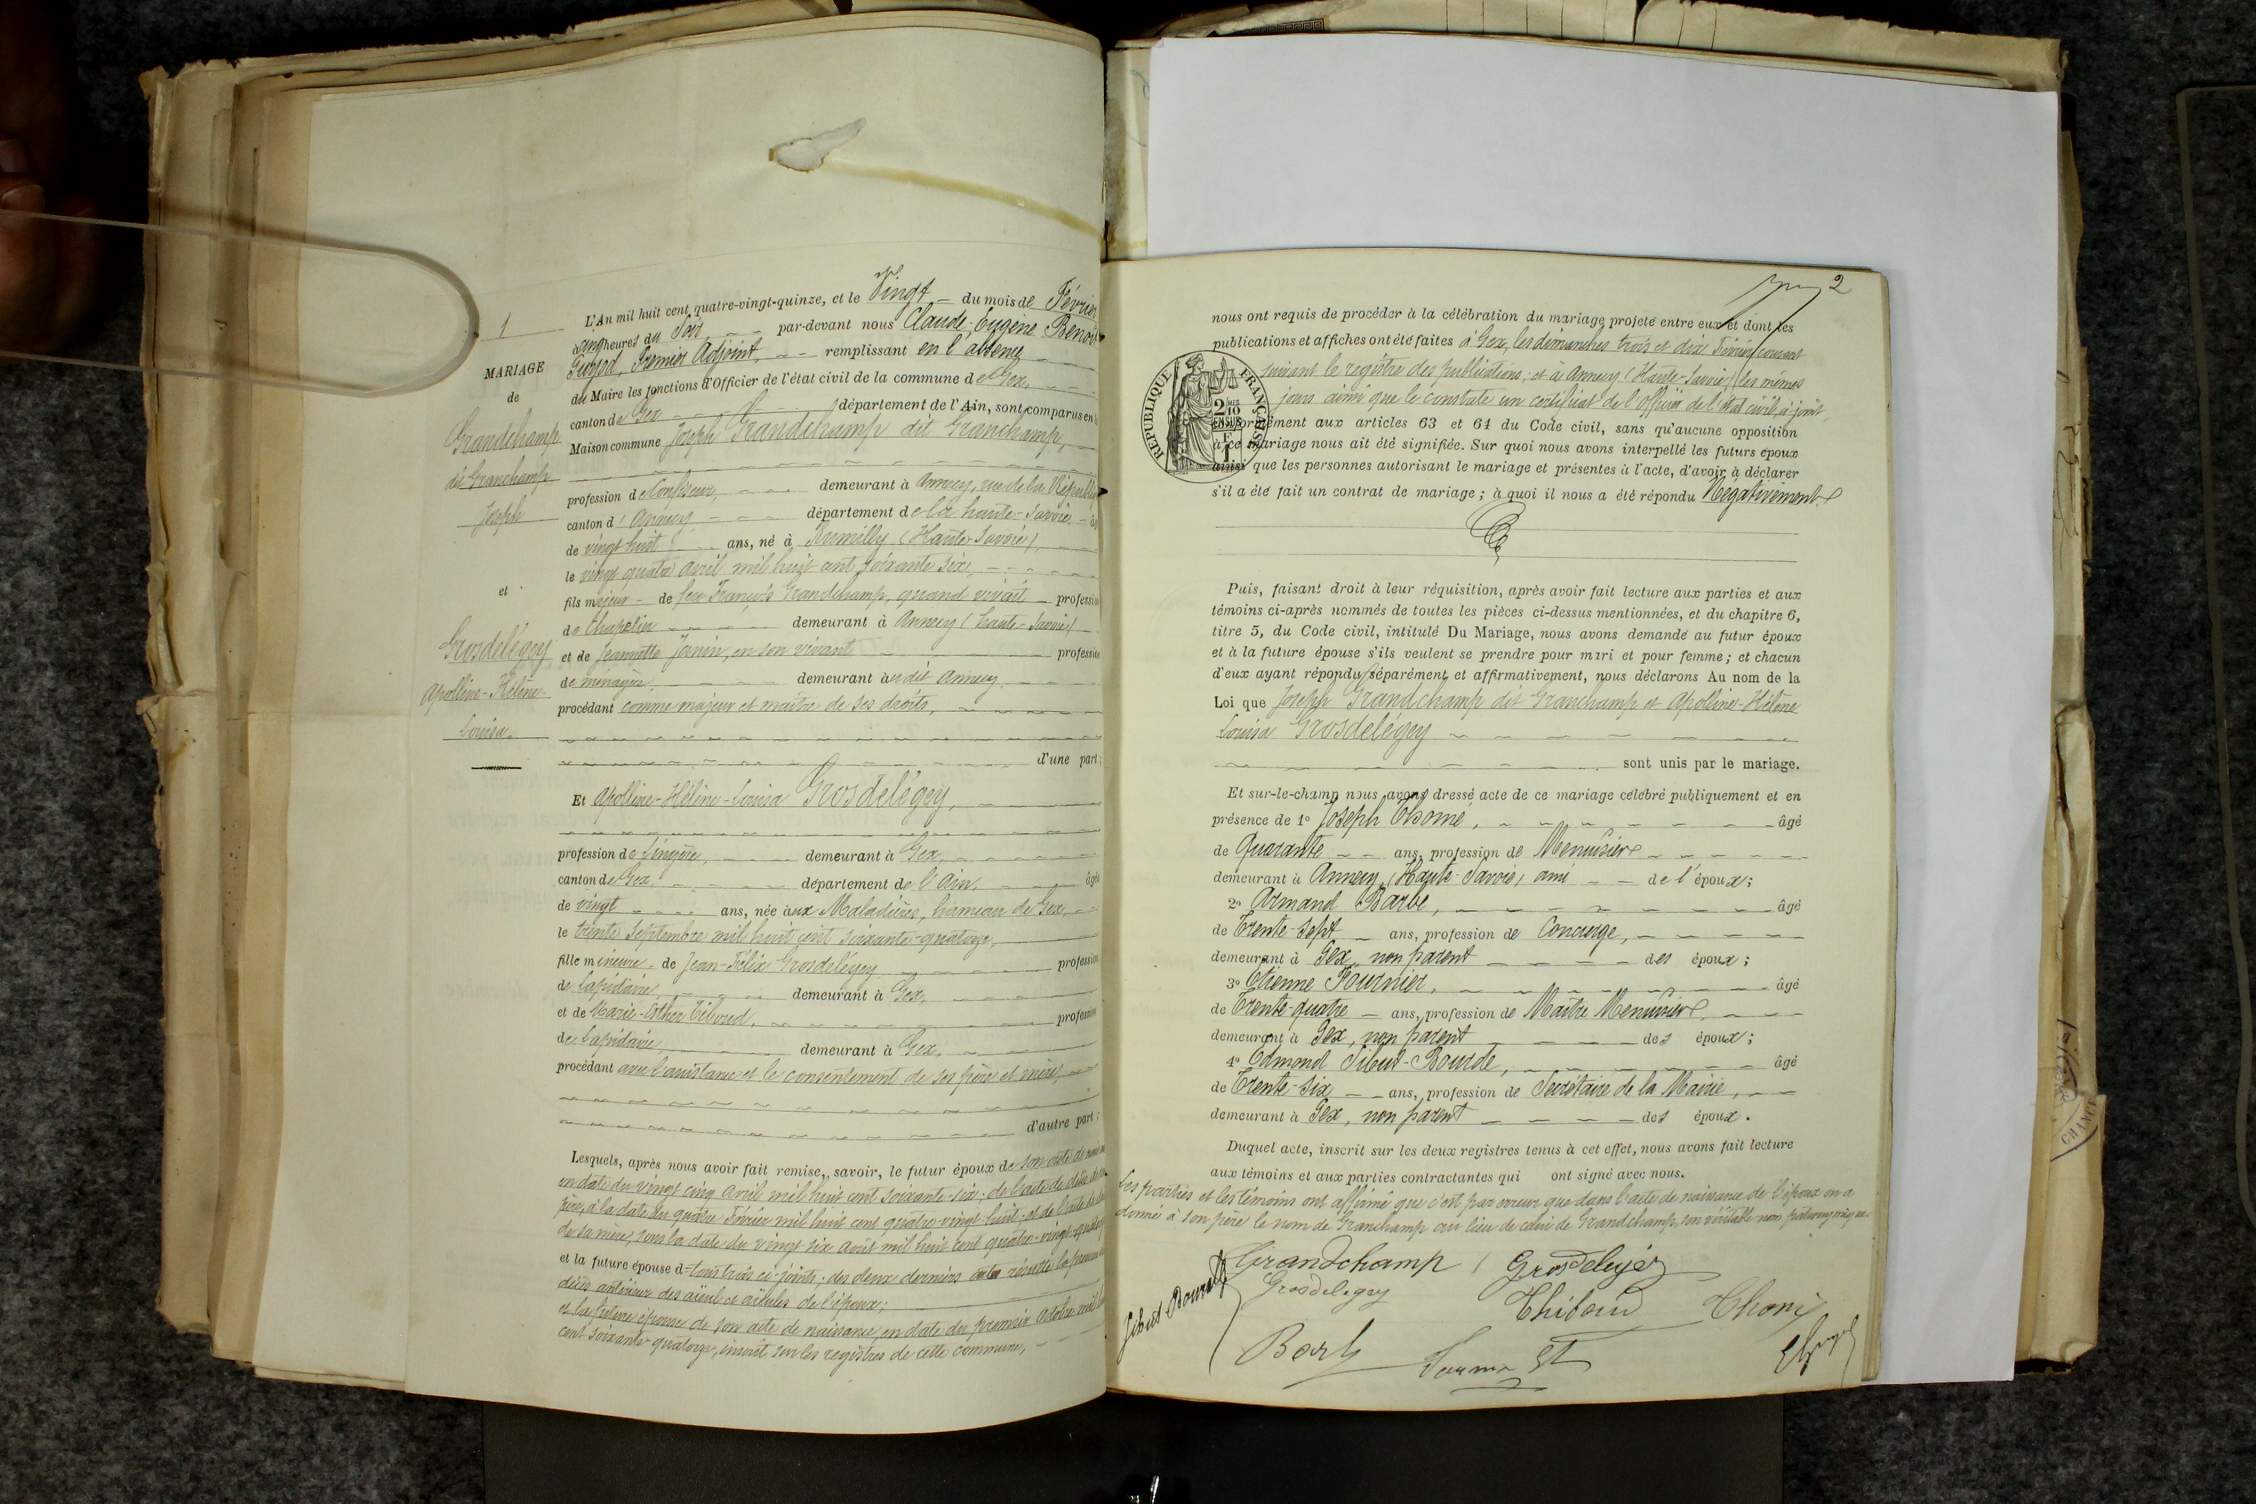 1
MARIAGE
de
Grandchamp
dit Granchamp
Joseph
et
Grosdelégey
Apolline-Hélène-
Louisa.
L'An mil huit cent quatre-vingt-quinze, et le Vingt du mois de Février
à cinq heures du Soir par-devant nous Claude-Eugène Benoît
Premier Adjoint, remplissant en l'absence
du Maire les fonctions d'Officier de l'état civil de la commune de Gex,
canton de Gex département de l'Ain, sont comparus en la
Maison commune Joseph Grandchamp dit Granchamp,
profession de Confiseur, demeurant à Annecy, rue de la
canton d'Annecy département de la haute-Savoie
de vingt huit ans, né à Rumilly (Haute Savoie),
le vingt quatre avril mil huit cent soixante six,
fils majeur de feu François Grandchamp, quand vivait profession
de Chapelier demeurant à Annecy (haute-Savoie)
et de Jeannette Janin, en son vivant profession
de ménagère, demeurant à dit Annecy
procédant comme majeur et maître de ses droits,
d'une part;
Et Apolline-Hélène-Louisa Grosdelégey,
profession de Lingère, demeurant à Gex,
canton de Gex, département de l'Ain, âgée
de vingt ans, née aux Maladières, hameau de Gex
le trente Septembre mil huit cent soixante-quatorze,
fille mineure de Jean-Félix Grosdelégey profession
de Lapidaire demeurant à Gex,
et de Marie-Esther Tiboud, profession
de Lapidaire, demeurant à Gex,
procédant avec l'assistance et le consentement de ses père et mère,
d'autre part;
Lesquels, après nous avoir fait remise, savoir, le futur époux de son acte de
en date du vingt cinq avril mil huit cent soixante-six; de l'acte de décès de
père, à la date du quatre Février mil huit cent quatre-vingt-huit; et de l'acte de
de sa mère, sous la date du vingt six août mil huit cent quatre-vingt
et la future épouse d= tous trois ci-joints; des deux derniers résulte le
décès antérieur des aïeul et aïeules de l'époux;
et la future épouse de son acte de naissance en date du premier Octobre mil huit
cent soixante-quatorze, inscrit sur les registres de cette commune,
2
nous ont requis de procéder à la célébration du mariage projeté entre eux et dont les
publications et affiches ont été faites à Gex, les dimanches trois et dix Février courant
suivant le registre des publications; et à Annecy (Haute-Savoie) les mêmes
jours ainsi que le constate un certificat de l'officier de l'état civil ci-joint,
RÉPUBLIQUE FRANÇAISE
conformément aux articles 63 et 64 du Code civil, sans qu'aucune opposition
à ce mariage nous ait été signifiée. Sur quoi nous avons interpellé les futurs époux
ainsi que les personnes autorisant le mariage et présentes à l'acte, d'avoir à déclarer
s'il a été fait un contrat de mariage; à quoi il nous a été répondu Négativement.
Puis, faisant droit à leur réquisition, après avoir fait lecture aux parties et aux
témoins ci-après nommés de toutes les pièces ci-dessus mentionnées, et du chapitre 6,
titre 5, du Code civil, intitulé Du Mariage, nous avons demandé au futur époux
et à la future épouse s'ils veulent se prendre pour mari et pour femme; et chacun
d'eux ayant répondu séparément et affirmativement, nous déclarons Au nom de la
Loi que Joseph Grandchamp dit Granchamp et Apolline-Hélène
Louisa Grosdelégey
sont unis par le mariage.
Et sur-le-champ nous avons dressé acte de ce mariage célébré publiquement et en
présence de 1° Joseph Thomé, âgé
de Quarante ans, profession de Menuisier
demeurant à Annecy (Haute-Savoie) ami de l'époux;
2° Armand Barbe, âgé
de Trente-sept ans, profession de Concierge,
demeurant à Gex, non parent des époux;
3° Etienne Fournier, âgé
de Trente-quatre ans, profession de Maître Menuisier,
demeurant à Gex, non parent des époux;
4° Edmond Sibut-Bourde, âgé
de Trente-six ans, profession de Secrétaire de la Mairie,
demeurant à Gex, non parent des époux.
Duquel acte, inscrit sur les deux registres tenus à cet effet, nous avons fait lecture
aux témoins et aux parties contractantes qui ont signé avec nous.
Les parties et les témoins ont affirmé que c'est par erreur que dans l'acte de naissance de l'époux on a
donné à son père le nom de Granchamp au lieu de celui de Grandchamp, son véritable nom patronymique.
Grandchamp Grosdelegey
Sibut Bourde Grosdelegey Thiboud Thomé